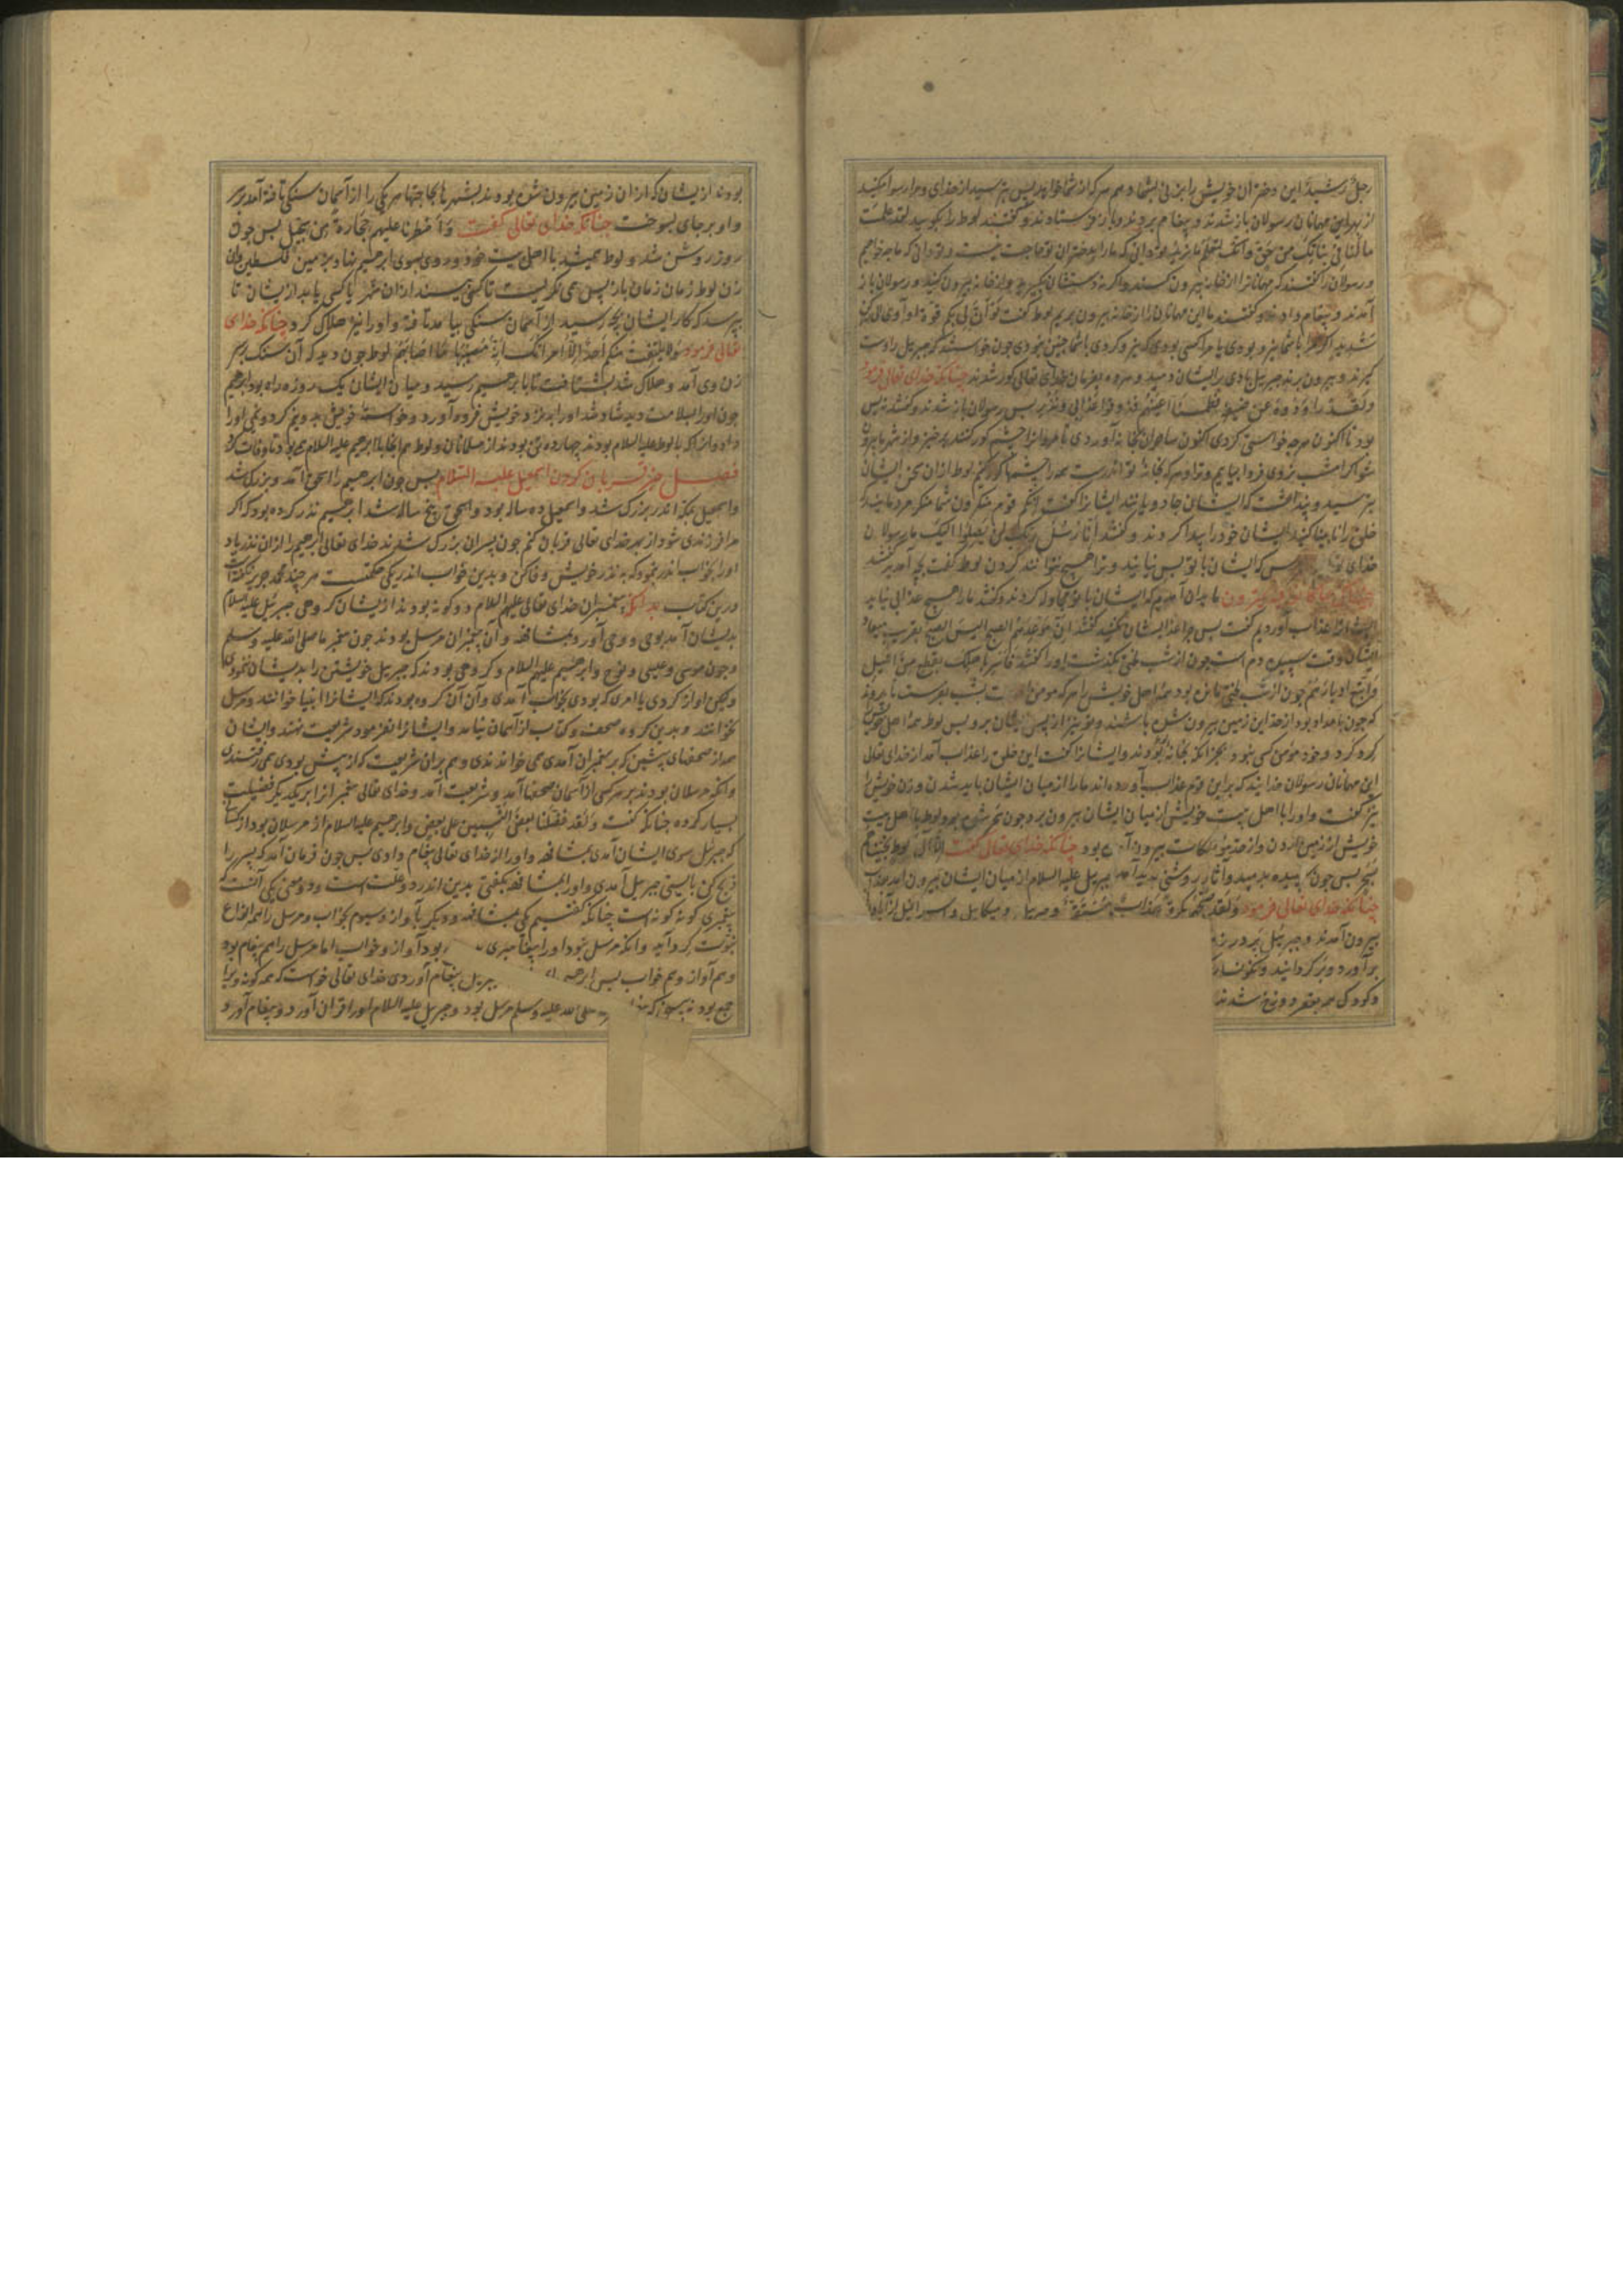 رجل رشید این دختران خویش را بزنی بشما دهم هرکه از شما خواهد پس بترسید از خدای و مرا رسوا مکنید
از بهر این مهمانان رسولان باز شدند و پیغام بردند و باز فرستادند و گفتند لوط را بگویید لقد علمت
ما لنا فی بناتک من حق وانک لتعلم ما نرید تو دانی که ما را بدختران تو حاجت نیست و تو دانی که ما چه خواهیم
و رسولان را گفتند که مهمانانرا از خانه بیرون کنید و رسولان باز
آمدند و پیغام دادند و گفتند ما این مهمانان را از خانه بیرون بریم لوط گفت لو ان لی بکم قوة او آوی الی رکن
شدید اگر مرا با شما نیرو بودی یا مرا کسی بودی که نیرو کردی با شما چنین نبودی چون خواستند که جبریل را دست
گیرند و بیرون برند جبریل بادی بر ایشان دمید و بفرمان خدای تعالی کور شدند چنانکه خدای تعالی فرمود
ولقد راودوه عن ضیفه فطمسنا اعینهم فذوقوا عذابی ونذر پس رسولان باز شدند و گفتند پس
بود تا اکنون هرچه خواستی کردی اکنون ساحران بخانه آوردی تا مردمانرا چشم کور کنند برخیز و از شهر ما بیرون
شو اگر امشب نروی فردا بیاییم و ترا و هرکه بخانه تو اندرست همه را چشمها کور کنیم لوط از آن سخن ایشان
بترسید و پنداشت که ایشان جادویانند ایشانرا گفت انکم قوم منکرون شما منکر مردمانید
خلق را نابینا کنید ایشان خود را پیدا کردند و گفتند انا رسل ربک لن یصلوا الیک ما رسولان
خدای تو پس که ایشان با تو بس نیایند و ترا هیچ نتوانند کردن لوط گفت بچه آمدید گفتند
ما بدان آمدیم که ایشان با تو مجادله کردند و گفتند ما را هیچ عذابی نیاید
ایشانرا عذاب آوردیم گفت پس چرا عذاب ایشان نکنید گفتند ان موعدهم الصبح الیس الصبح بقریب میعاد
ایشان وقت سپیده دم است چون از شب لختی بگذشت او را گفتند فاسر باهلک بقطع من اللیل
واتبع ادبارهم چون از شب لختی مانده بود همه اهل خویش را هرکه مومن است بشب بفرست تا بروند
که چون بامداد بود از حد این زمین بیرون شده باشند و تو نیز از پس ایشان برو پس لوط همه اهل خویش
گرد کرد و خود مومن کسی نبود بجز آنکه بخانه او بودند و ایشانرا گفت این خلق را عذاب آمد از خدای تعالی
این مهمانان رسولان خدایند که بر این قوم عذاب آورده اند ما را از میان ایشان باید شدن و زن خویش را
نیز گفت و او را با اهل بیت خویش از میان ایشان بیرون برد چون سحر شده بود لوط با اهل بیت
خویش از زمین اردن و از حد موتفکات بیرون آمده بود چنانکه خدای تعالی گفت الا آل لوط نجیناهم
بسحر پس چون سپیده بدمید و آثار روشنی پدید آمد جبریل علیه السلام از میان ایشان بیرون آمد
چنانکه خدای تعالی فرمود ولقد صبحهم بکرة عذاب مستقر و جبریل و میکاییل و اسرافیل
بیرون آمدند و جبرئیل پر در زیر
برآورد و بر گردانید و نگونسار
و کودکی همه بقعر دوزخ شدند
بودند از ایشان که از آن زمین بیرون شده بودند بشهرها بحاجتها هر یکی را از آسمان سنگی تافته آمد بر سر
و او بر جای بسوخت چنانکه خدای تعالی گفت وامطرنا علیهم حجارة من سجیل پس چون
روز روشن شد و لوط همیشد با اهل بیت خود و روی بسوی ابرهیم نهاد بزمین فلسطین و آن
زن لوط زمان زمان باز پس همی نگریست تا کسی بیند از آن شهر یا کسی یابد از ایشان تا
بپرسد که کار ایشان بکجا رسید از آسمان سنگی بیامد تافته و او را نیز هلاک کرد چنانکه خدای
تعالی فرمود ولا یلتفت منکم احد الا امراتک انه مصیبها ما اصابهم لوط چون دید که آن سنگ بسر
زن وی آمد و هلاک شد بشتافت تا با ابرهیم رسید و میان ایشان یک روزه راه بود ابرهیم
چون او را بسلامت دید شاد شد او را بنزد خویش فرود آورد و خواسته خویش بدو نیم کرد و نیمی او را
داد و آنان که با لوط علیه السلام بودند چهارده تن بودند از مسلمانان و لوط هم آنجا با ابرهیم علیه السلام می بود تا وفات کرد
فصل در خبر قربان کردن اسمعیل علیه السلام پس چون ابرهیم را اسحق آمد و بزرگ شد
و اسمعیل بمکه اندر بزرگ شد و اسمعیل ده ساله بود و اسحق پنج ساله شد ابرهیم نذر کرده بود که اگر
مرا فرزندی شود از بهر خدای تعالی قربان کنم چون پسران بزرگ شدند خدای تعالی ابرهیم را از آن نذر یاد
او را بخواب اندر نمود که بنذر خویش وفا کن و بدین خواب اندر یکی حکمتست هرچند محمد جریر نگفته است
درین کتاب بدانکه پیغمبران خدای تعالی علیهم السلام دو گونه بودند از ایشان گروهی جبرئیل علیه السلام
بدیشان آمدی و وحی آورد بمشافهه و آن پیغمبران مرسل بودند چون پیغمبر ما صلی الله علیه و سلم
و چون موسی و عیسی و نوح و ابرهیم علیهم السلام و گروهی بودند که جبریل خویشتن را بدیشان ننمودی
ولیکن آواز کردی یا امری که بودی بخواب آمدی و آن آن گروه بودند که ایشانرا انبیا خوانند و مرسل
نخوانند و بدین گروه صحف و کتاب از آسمان نیامد و ایشانرا نفرمود شریعت نهند و ایشان
همه از صحفهای پیشین که بر پیغمبران آمدی می خواندندی و هم بر آن شریعت که از پیش بودی همی رفتندی
و آنکه مرسلان بودند بر هر کسی از آسمان صحفها آمد و شریعت آمد و خدای تعالی پیغمبرانرا بر یکدیگر فضیلت
بسیار کرده چنانکه گفت ولقد فضلنا بعض النبیین علی بعض و ابرهیم علیه السلام از مرسلان بود از کسانی
که جبرئیل سوی ایشان آمدی بمشافهه و او را از خدای تعالی پیغام دادی پس چون فرمان آمد که پسر را
ذبح کن بایستی جبریل آمدی و او را بمشافهه بگفتی بدین اندر دو علت است و دو معنی یکی آنست که
پیغمبری گونه گونه است چنانکه گفتیم یکی بمشافهه و دیگر بآواز و سیوم بخواب و مرسل را همه انواع
نبوت گرد آید و آنکه مرسل نبود او را بود آواز و خواب اما مرسل را هم پیغام بود
و هم آواز و هم خواب پس ابرهیم جبریل پیغام آوردی خدای تعالی خواست که همه گونه ویرا
جمع بود صلی الله علیه وسلم مرسل بود و جبریل علیه السلام او را قرآن آورد و پیغام آورد